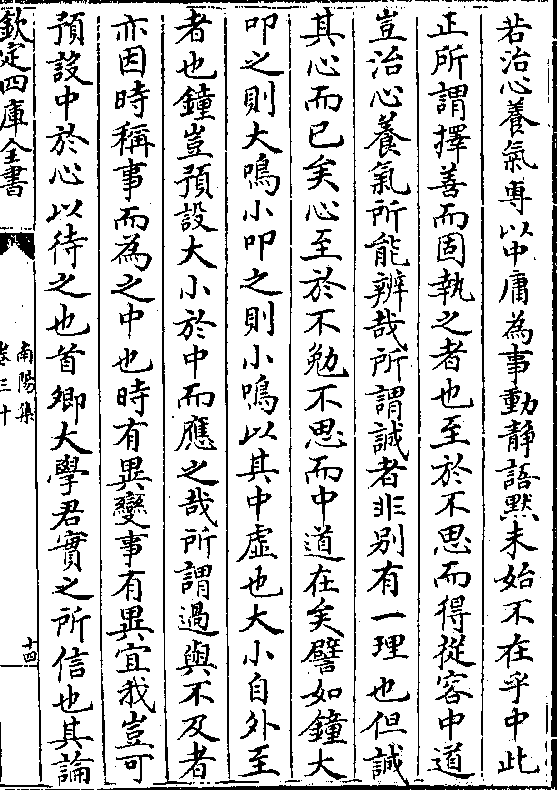 若治心養氣専以中庸為事動静語黙未始不在乎中此
正所謂擇善而固執之者也至於不思而得從容中道
豈治心養氣所能辨哉所謂誠者非别有一理也但誠
其心而已矣心至於不勉不思而中道在矣譬如鐘大
叩之則大鳴小叩之則小鳴以其中虛也大小自外至
者也鐘豈預設大小於中而應之哉所謂過與不及者
亦因時稱事而為之中也時有異變事有異宜我豈可
預設中於心以待之也首卿大學君實之所信也其論
欽定四庫全書
南陽集
卷三十
十四